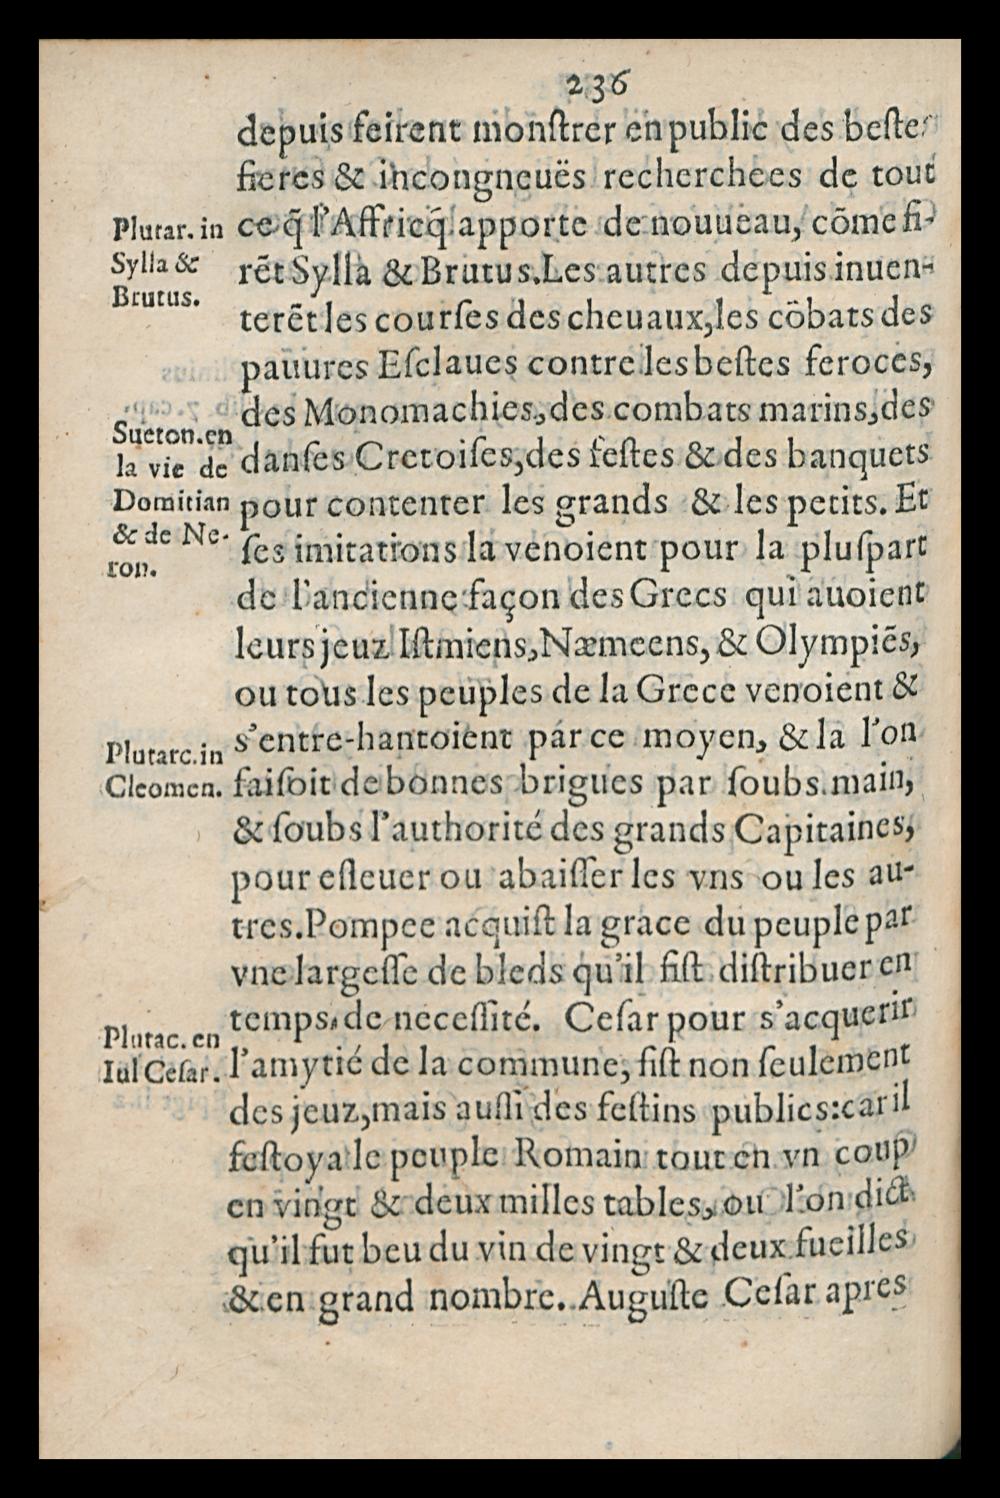 236
depuis feirent monſtrer en public des beſtes
fieres & incongneuës recherchees de tout
ce q̃ l'Affricq̃ apporte de nouueau, cõme fi-
rẽt Sylla & Brutus. Les autres depuis inuen-
terẽt les courſes des cheuaux, les cõbats des
pauures Eſclaues contre les beſtes feroces,
des Monomachies, des combats marins, des
danſes Cretoiſes, des feſtes & des banquets
pour contenter les grands & les petits. Et
ſes imitations la venoient pour la pluſpart
de l'ancienne façon des Grecs qui auoient
leurs jeuz Iſtmiens, Næmeens, & Olympiẽs,
ou tous les peuples de la Grece venoient &
s'entre-hantoient par ce moyen, & la l'on
faiſoit de bonnes brigues par ſoubs main,
& ſoubs l'authorité des grands Capitaines,
pour eſleuer ou abaiſſer les vns ou les au-
tres. Pompee acquiſt la grace du peuple par
vne largeſſe de bleds qu'il fiſt diſtribuer en
temps de neceſſité. Ceſar pour s'acquerir
l'amytié de la commune, fiſt non ſeulement
des jeuz, mais auſſi des feſtins publics: car il
feſtoya le peuple Romain tout en vn coup
en vingt & deux milles tables, ou l'on dict
qu'il fut beu du vin de vingt & deux fueilles
& en grand nombre. Auguſte Ceſar apres
Plutar. in
Sylla &
Brutus.
Sueton. en
la vie de
Domitian
& de Ne-
ron.
Plutarc. in
Cleomen.
Plutac. en
Iul Ceſar.